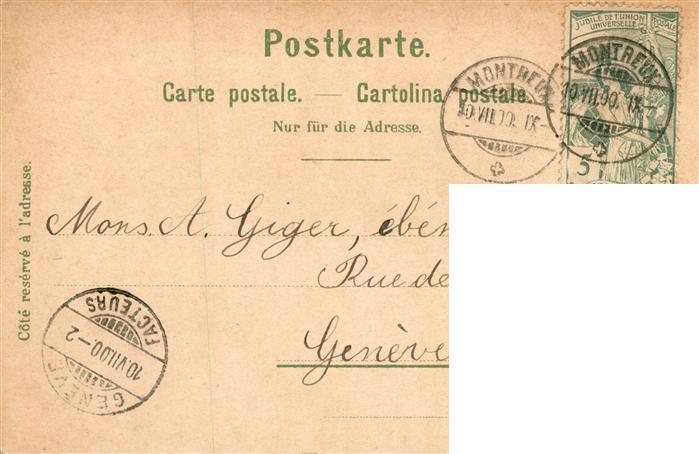 Postkarte.
Carte postale. — Cartolina postale.
Nur für die Adresse.
JUBILÉ DE L'UNION POSTALE
UNIVERSELLE
5
MONTREUX
10.VII.00. IX–
MONTREUX
10.VII.00. IX–
Côté reservé à l'adresse.
Mons. A. Giger,
Rue de
Genève
FACTEURS
10.VII.00–2
GENÈVE